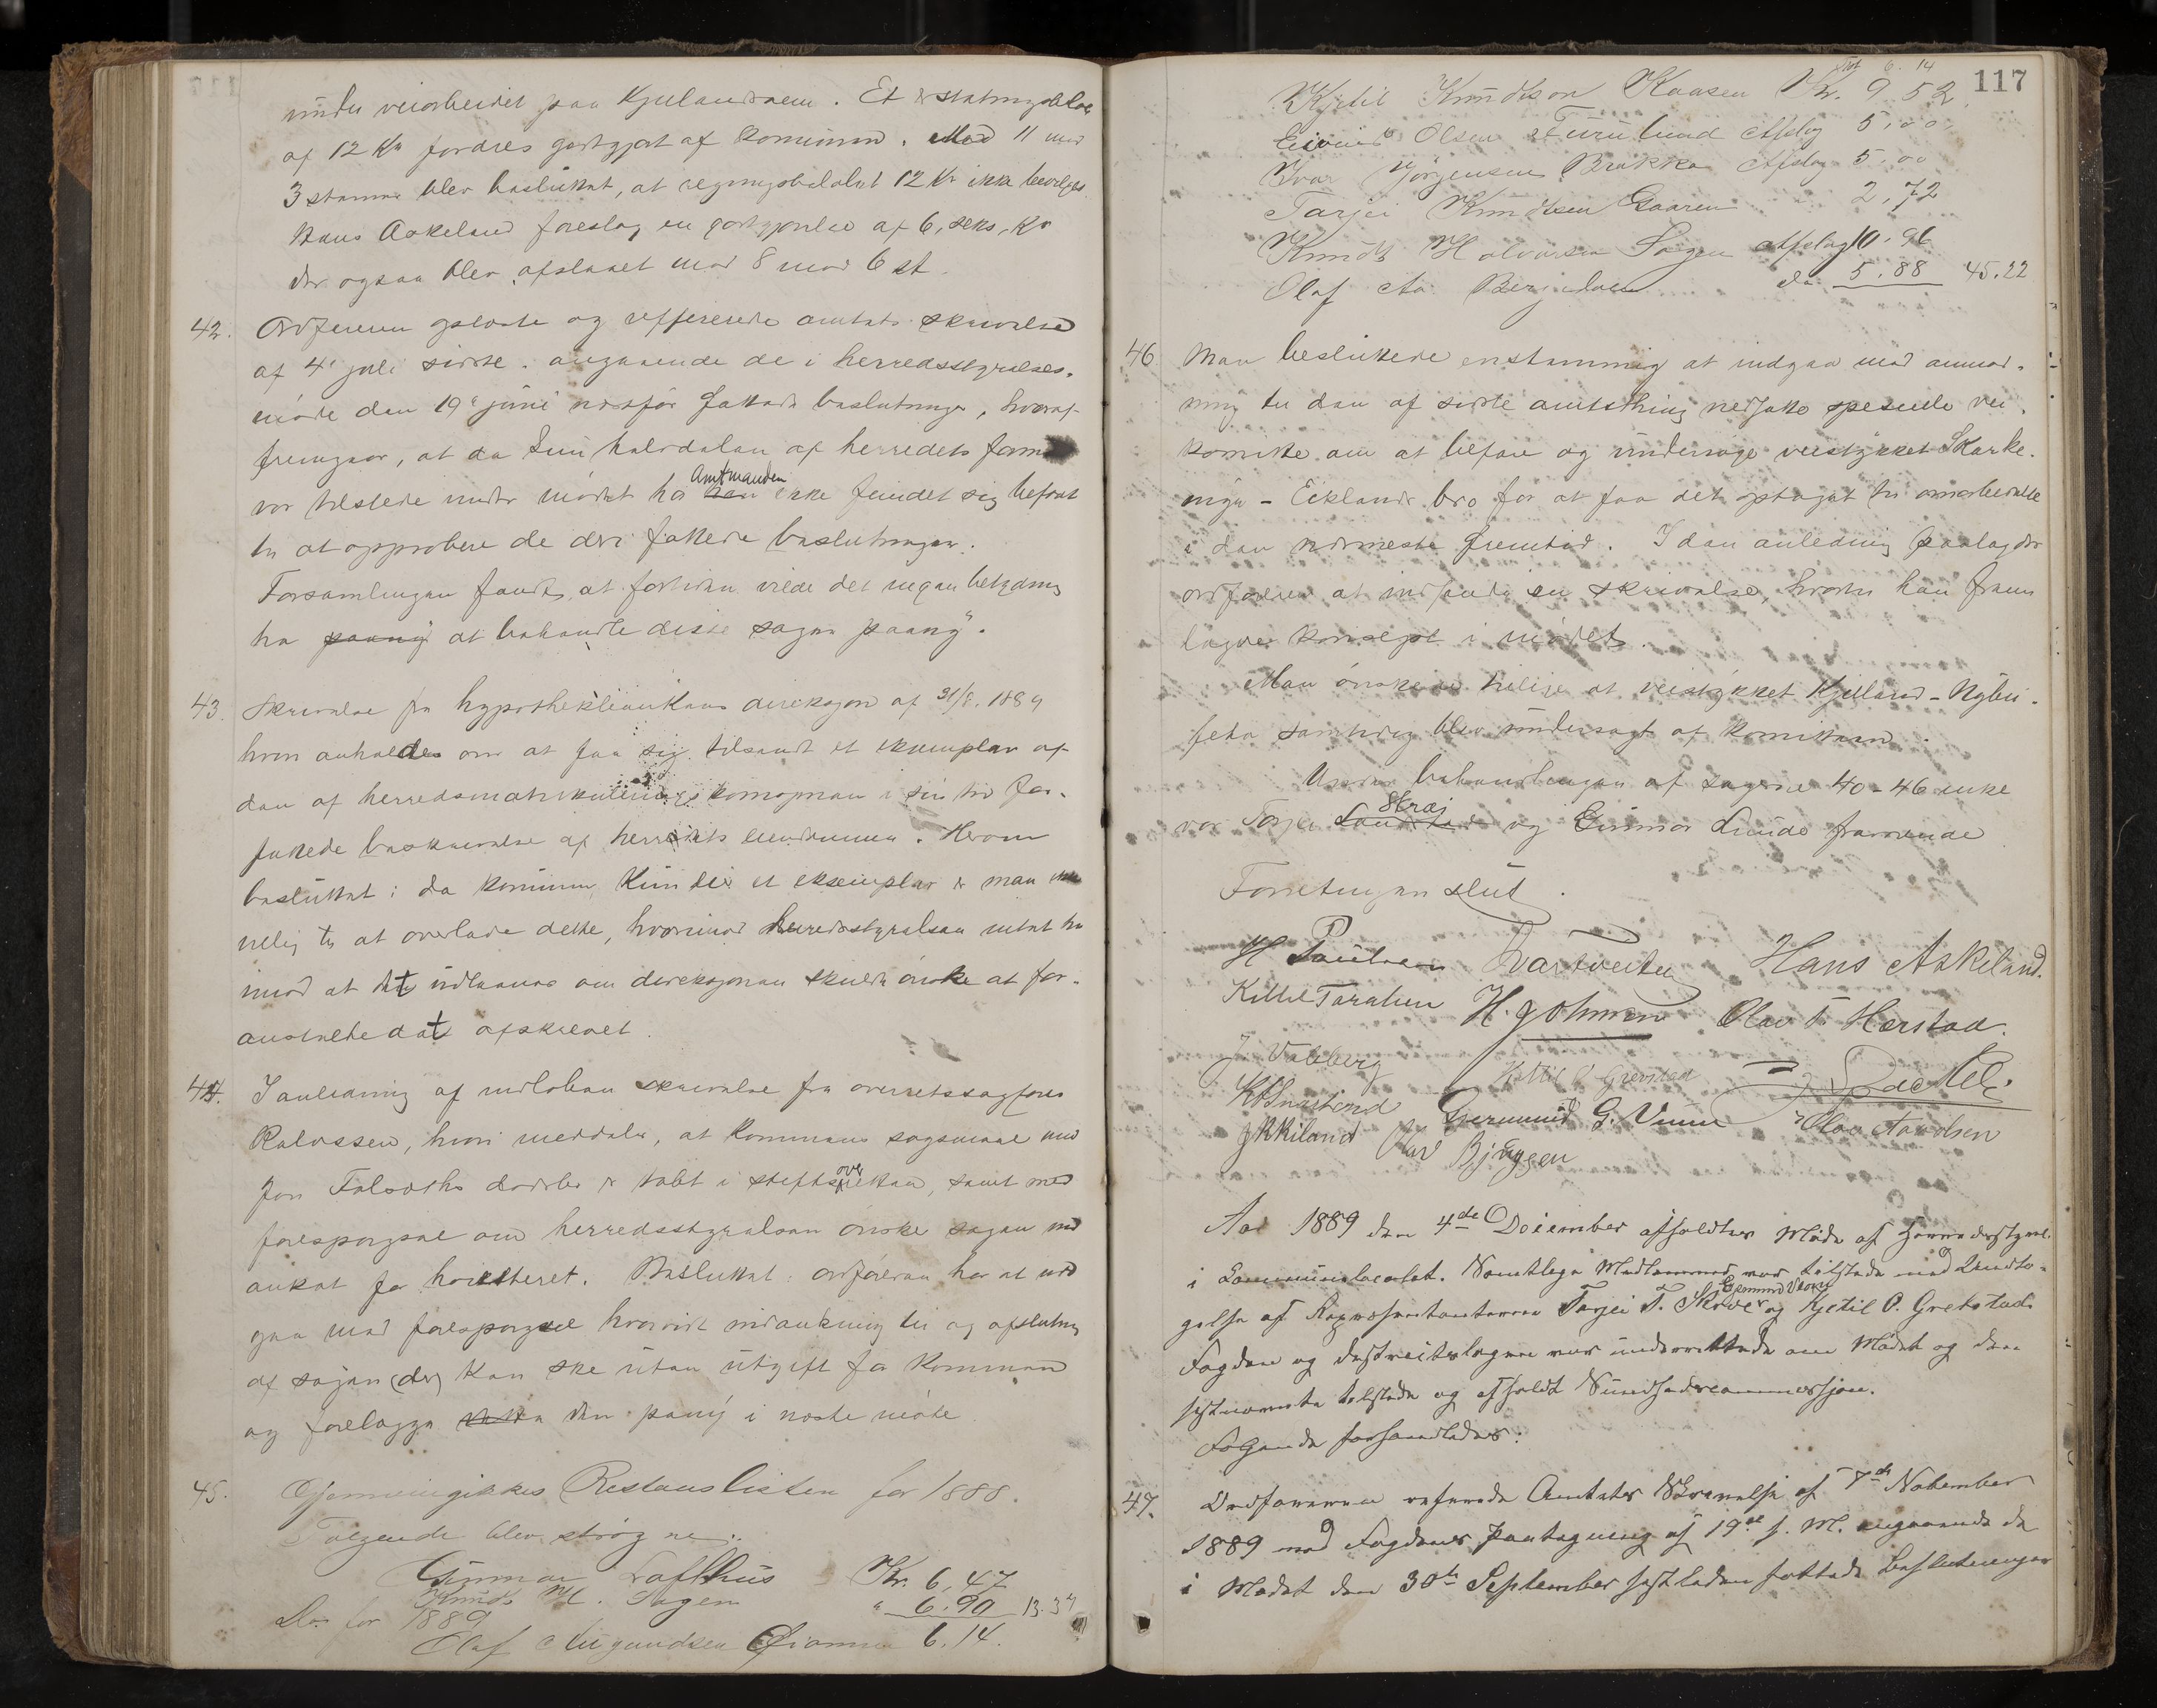 under veiarbeidet paa Kjellandsveien. Et erstatningsbeløb
af 12 Kr fordres godtgjort af kommunen. Med 11 mod
3 stemmer blev besluttet, at regningsbeløbet 12 Kr ikke bevilges
Hans Askeland foreslog en godtgjørelse af 6, seks, Kr
der ogsaa blev afslaaet med 8 mod 6 st.
42. Ordføreren oplæste og refererede amtets skrivelse
af 4de juli sidste angaaende de i herredsstyrelses-
møde den 19de juni næstfør fattede beslutninger, hvoraf
fremgaar, at da kun halvdelen af herredets
var tilstede under mødet har amtmanden ikke fundet sig beføiet
til at approbere de deri fattede beslutninger.
Forsamlingen fandt, at fortiden vilde det ingen betydning
ha paany at behandle disse sager paany.
43. Skrivelse fra hypothekbankens direksjon af 31/8 1889
hvori anholdes om at faa sig tilsendt et eksemplar af
den af herredsmatrikuleringskomisjonen i sin tid for-
fattede beskrivelse af herredets eiendomme. Herom
besluttet: da kommunen kun eier et eksemplar er man ikke
villig til at overlade dette, hvorimod herredsstyrelsen intet har
imod at det udlaanes om direksjonen skulde ønske at for-
anstalte det afskrevet.
44. I anledning af indløben skrivelse fra overretssagfører
Rolvssen, hvori meddeles, at kommunens søgsmaal mod
Jon Falsoths dødsbo er tabt i stiftsoverretten, samt med
forespørgsel om herredsstyrelsen ønsker sagen ind
anket for høiesteret. Besluttet: ordføreren har at ind
gaa med forespørgsel hvorvidt indankning til og afslutning
af sagen (der) kan ske uten utgift for kommunen
og forelægge den paany i næste møde
45. Gjennemgikkes Restanslisten for 1888.
Følgende blev strøgne:
Gunnar Lofthus Kr. 6,47
Knudt H. Sagen " 6.90 13.37
Do. for 1889
Olaf Augundsen 6.14.
117
6. 14
Kjetil Knudtson Kaasen Kr. 9 52
Eivind Olsen Furulund Afslag 5,00
Ivar Jörgensen Brakka Afslag 5,00
Tarjei Knudtsen Gaaren 2,72
Knudt Halvorsen Sagen Afslag 10.96
Olaf Aa. do 5.88 45.22
46 Man besluttede enstemmig at indgaa med anmod-
ning til den af sidste amtsthing nedsatte specielle vei-
komite om at befare og undersøge veistykket Skarke-
- Eiklands bro for at faa det optaget til omarbeidelse
i den nærmeste fremtid. I den anledning paalagdes
ordføreren at indsende en skrivelse, hvortil han frem
lagde koncept i mødet.
Man ønskede tillige at veistykket Kjelland - Nybu-
samtidig blev undersøgt af komiteen.
Under behandlingen af sagerne 40-46 inkl
var Tarjei Skræi og Gunnar Lunde fraværende
Forretningen slut.
H Poulsen Hans Askeland.
Kittel Taraldsen H. Johnsen Olav T. Herstad.
J. Valeberg Kjetil O. Grevstad
Germund G. Vinne Olav Aanolsen
J Kkiland Olav Bjingsen
Aar 1889 den 4de December afholdtes Møde af Herredsstyrel.
i Communelocalet. Samtlige Medlemmer var tilstede med Undta-
gelse af Repræsentanterne Tarjei T. Skræi og Kjetil O. Grevstad.
Fogden og Distriktslægen var underrettede om Mødet og den
sistnævnte tilstede og afholdt Sundhedscommission.
Følgende forhandledes:
47. Ordføreren refererede Amtets Skrivelse af 7de November
1889 med Fogdens Paategning af 19de s. M. angaaende de
i Mødet den 30te September sistleden fattede Beslutninger